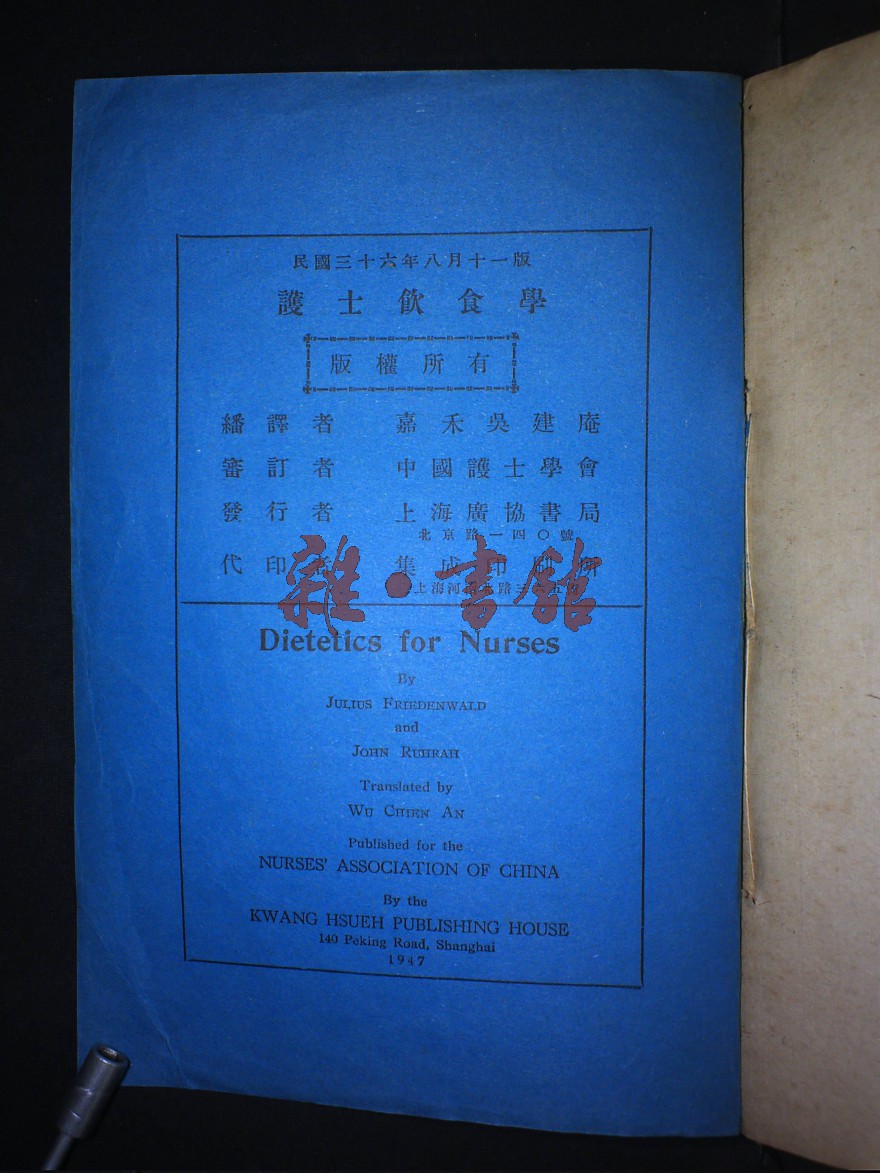 民國三十六年八月十一版
護士飲食學
版權所有
繙譯者 嘉禾吳建庵
審訂者 中國護士學會
發行者 上海廣協書局
北京路一四〇號
代印者 集成印刷所
上海河南路三
雜·書館
Dietetics for Nurses
By
JULIUS FRIEDENWALD
and
JOHN RUHRAH
Translated by
WU CHIEN AN
Published for the
NURSES' ASSOCIATION OF CHINA
By the
KWANG HSUEH PUBLISHING HOUSE
140 Peking Road, Shanghai
1947